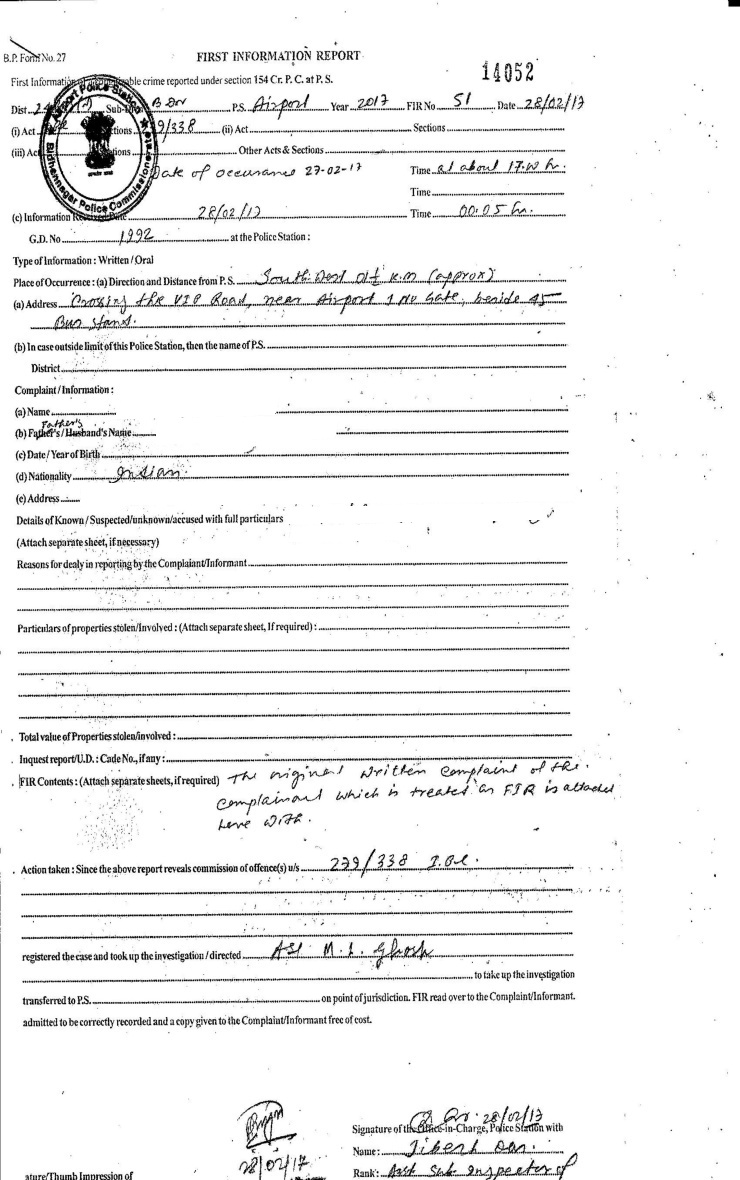 B.P. Form No. 27
FIRST INFORMATION REPORT
14052
First Information of cognizable crime reported under section 154 Cr. P. C. at P. S.
Dist. Sub- P.S. Airport Year 2017 FIR No 51 Date 28/02/17
(i) Act Sections 9/338 (ii) Act Sections
(iii) Act Sections Other Acts & Sections
Airport Police Station
Bidhannagar Police Commissionerate
Date of occurance 27-02-17 Time at about 17.40 hr.
Time
(c) Information Received Date 28/02/17 Time 00:05 hr.
G.D. No 1992 at the Police Station :
Type of Information : Written / Oral
Place of Occurrence : (a) Direction and Distance from P. S. South-West K.M (approx)
(a) Address Crossing the VIP Road, near Airport 1 No Gate, beside 45
Bus stand.
(b) In case outside limit of this Police Station, then the name of P.S.
District
Complaint / Information :
(a) Name
Father's
(b) Father's / Husband's Name
(c) Date / Year of Birth
(d) Nationality Indian.
(e) Address
Details of Known / Suspected/unknown/accused with full particulars
(Attach separate sheet, if necessary)
Reasons for dealy in reporting by the Complaiant/Informant
Particulars of properties stolen/Involved : (Attach separate sheet, If required) :
Total value of Properties stolen/involved :
Inquest report/U.D. : Cade No., if any :
FIR Contents : (Attach separate sheets, if required) The original written complaint of the
complainant which is treated as FIR is attached
here with.
Action taken : Since the above report reveals commission of offence(s) u/s 279/338 I.P.C.
registered the case and took up the investigation / directed ASI M. L. Ghosh
to take up the investigation
transferred to P.S. on point of jurisdiction. FIR read over to the Complaint/Informant.
admitted to be correctly recorded and a copy given to the Complaint/Informant free of cost.
28/02/17
Signature of the Office-in-Charge, Police Station with
28/02/17
Name : Jibesh Das.
Rank : Asst Sub Inspector of
ature/Thumb Impression of